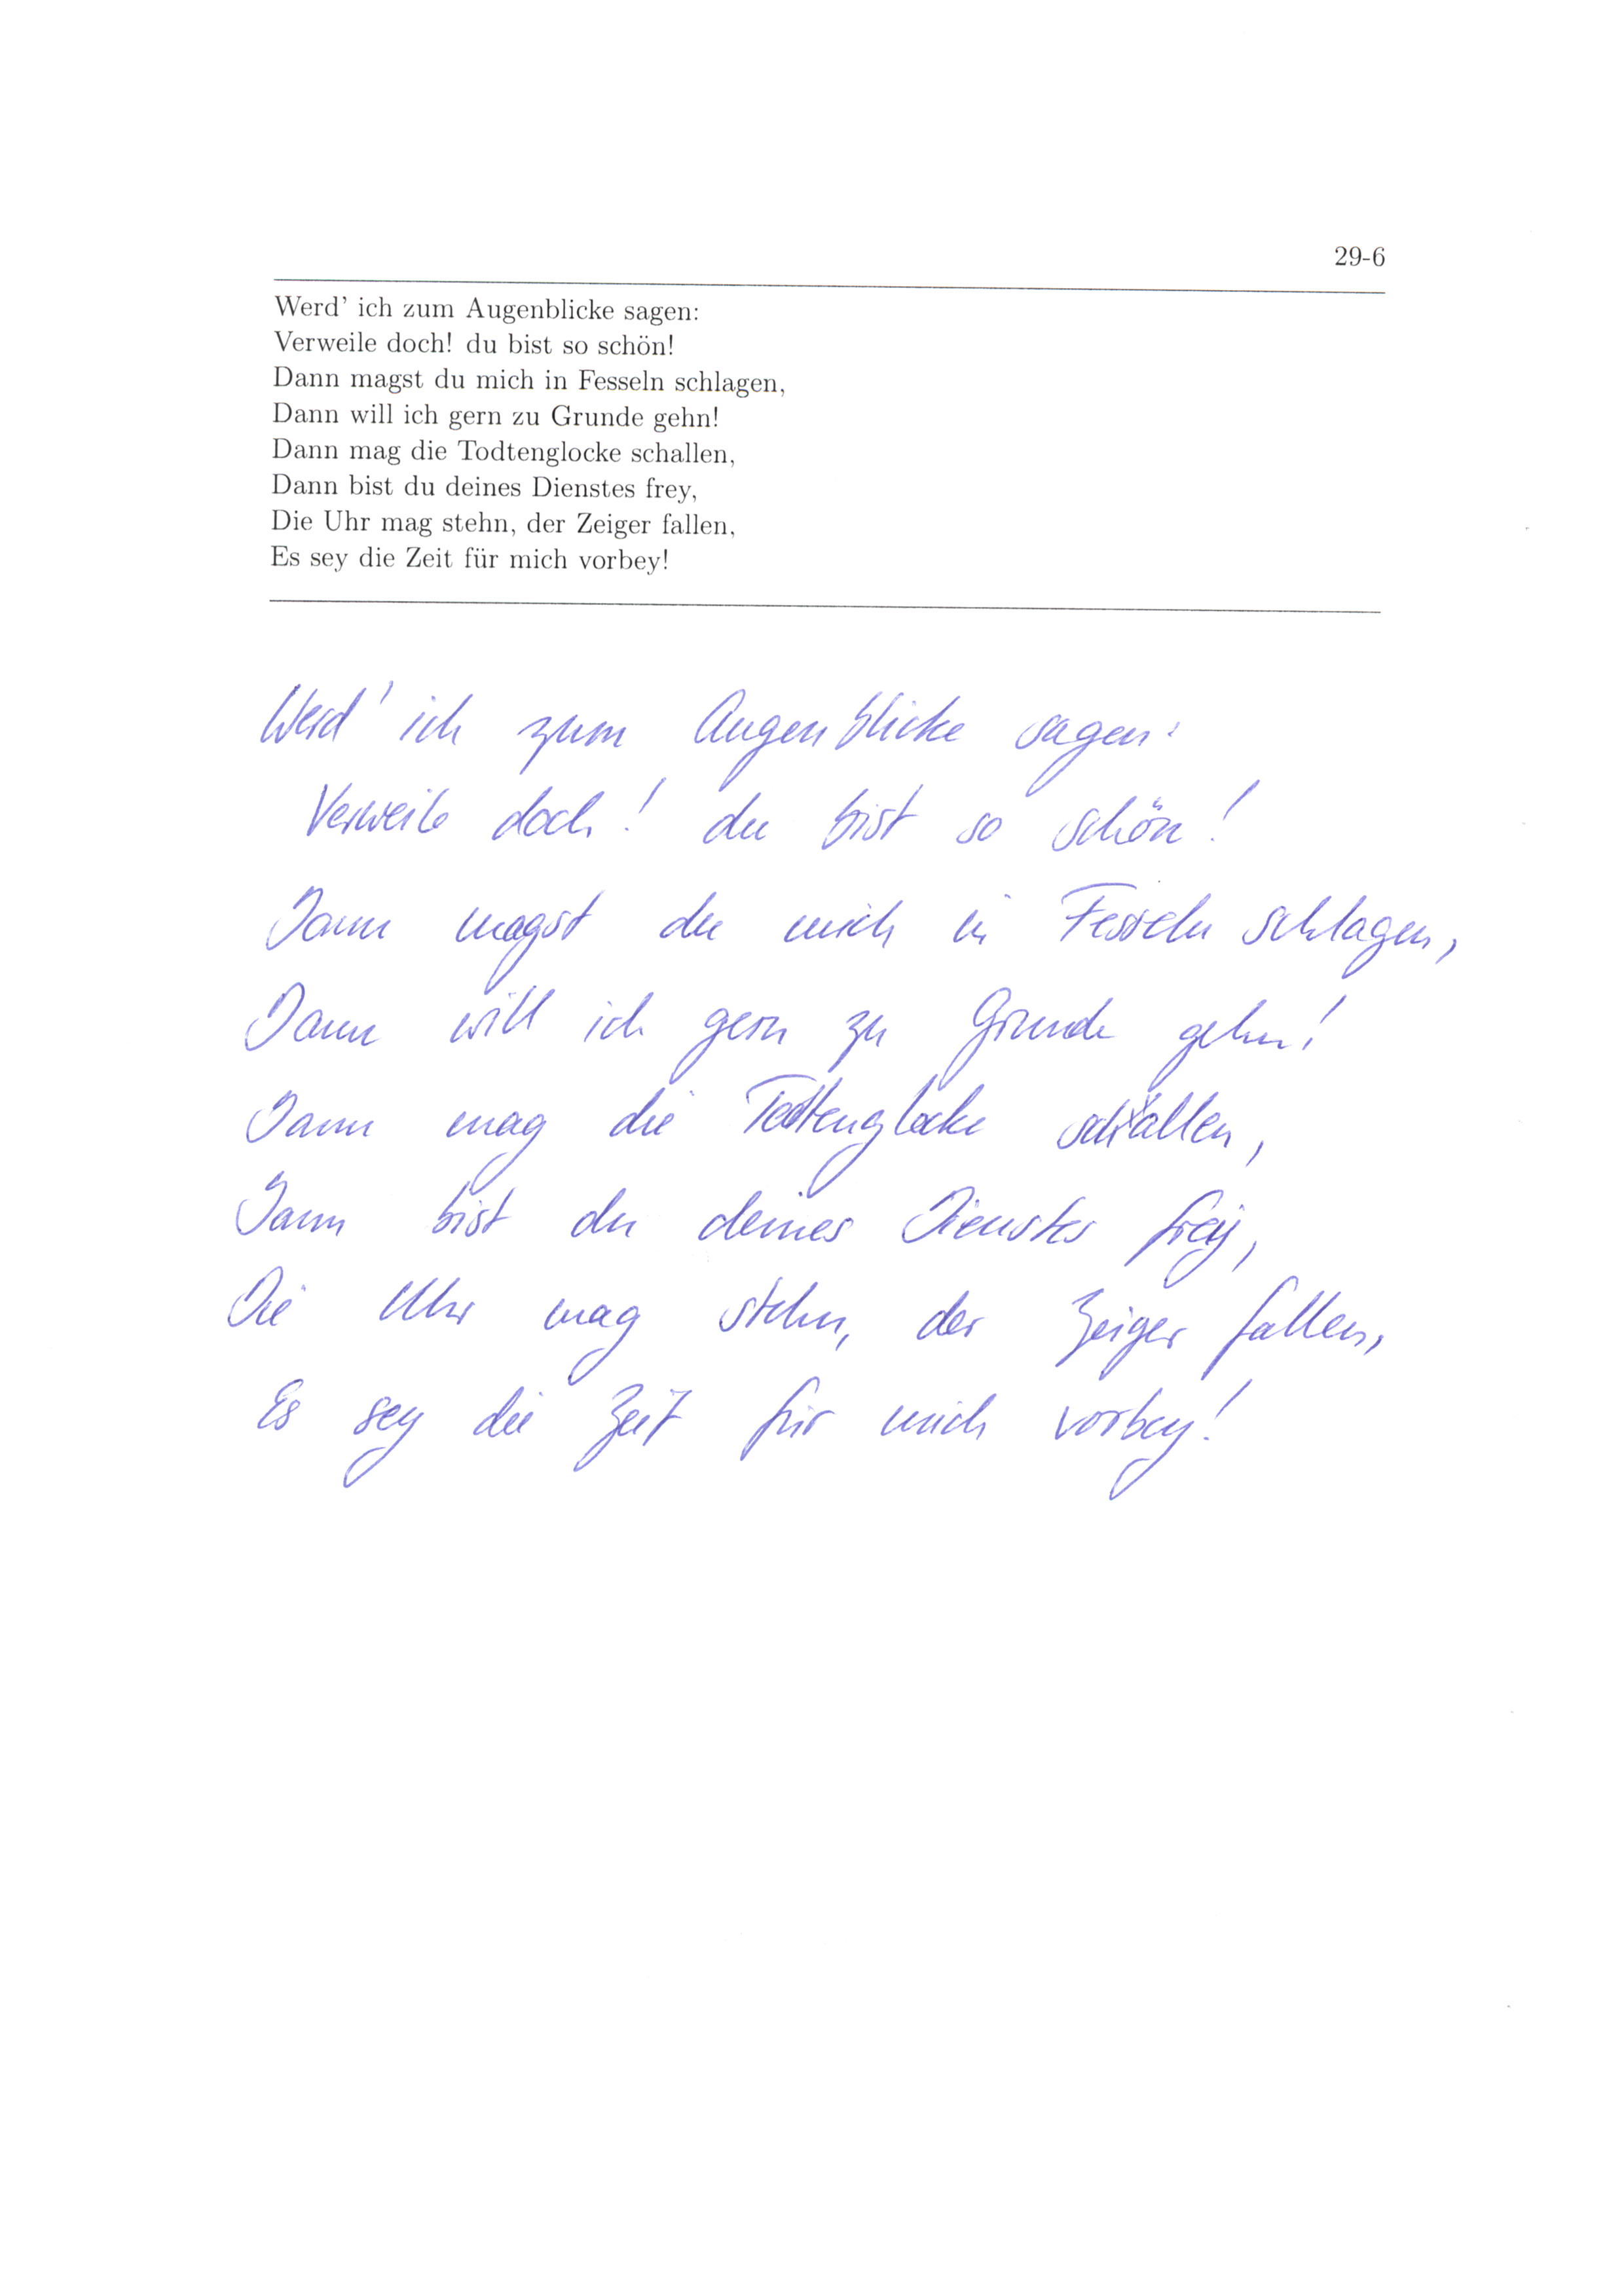 29-6
Werd' ich zum Augenblicke sagen:
Verweile doch! du bist so schön!
Dann magst du mich in Fesseln schlagen,
Dann will ich gern zu Grunde gehn!
Dann mag die Todtenglocke schallen,
Dann bist du deines Dienstes frey,
Die Uhr mag stehn, der Zeiger fallen,
Es sey die Zeit für mich vorbey!
Werd' ich zum Augenblicke sagen:
Verweile doch! du bist so schön!
Dann magst du mich in Fesseln schlagen,
Dann will ich gern zu Grunde gehn!
Dann mag die Todtenglocke schallen,
Dann bist du deines Dienstes frey,
Die Uhr mag stehn, der Zeiger fallen,
Es sey die Zeit für mich vorbey!